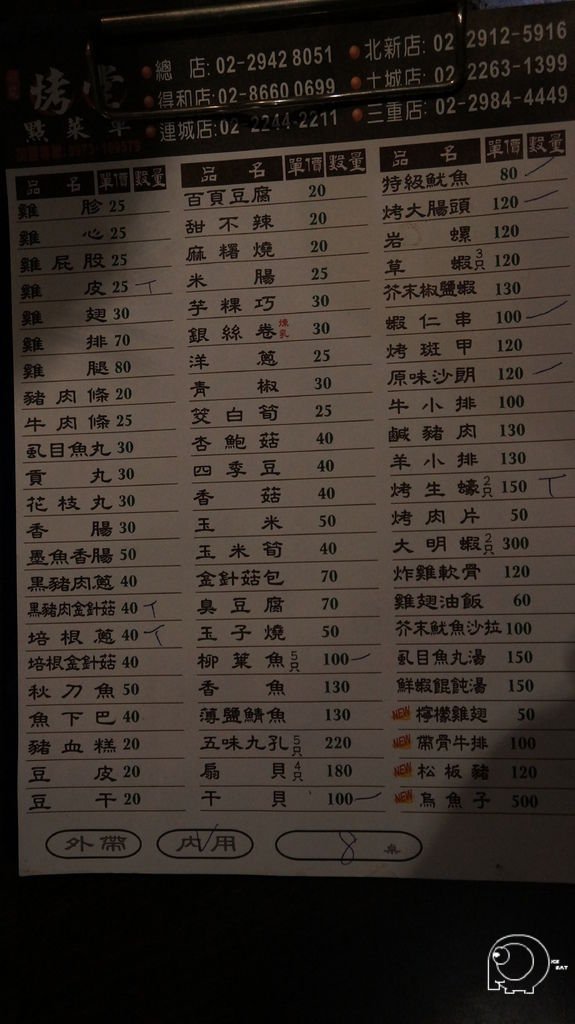 烤堂
點菜單
總 店: 02-2942 8051
得和店: 02-8660 0699
連城店: 02-2244-2211
北新店: 02-2912-5916
十城店: 02-2263-1399
三重店: 02-2984-4449
品 名 單價 數量
雞胗 25
雞心 25
雞屁股 25
雞皮 25 一
雞翅 30
雞排 70
雞腿 80
豬肉條 20
牛肉條 25
虱目魚丸 30
貢丸 30
花枝丸 30
香腸 30
墨魚香腸 50
黑豬肉蔥 40
黑豬肉金針菇 40 一
培根蔥 40 一
培根金針菇 40
秋刀魚 50
魚下巴 40
豬血糕 20
豆皮 20
豆干 20
品 名 單價 數量
百頁豆腐 20
甜不辣 20
麻糬燒 20
米腸 25
芋粿巧 30
銀絲卷 煉乳 30
洋蔥 25
青椒 30
筊白筍 25
杏鮑菇 40
四季豆 40
香菇 40
玉米 50
玉米筍 40
金針菇包 70
臭豆腐 70
玉子燒 50
柳葉魚 5只 100 一
香魚 130
薄鹽鯖魚 130
五味九孔 5只 220
扇貝 4只 180
干貝 100 一
品 名 單價 數量
特級魷魚 80 一
烤大腸頭 120 一
岩螺 120
草蝦 3只 120
芥末椒鹽蝦 130
蝦仁串 100 一
烤斑甲 120
原味沙朗 120 一
牛小排 100
鹹豬肉 130
羊小排 130
烤生蠔 2只 150 T
烤肉片 50
大明蝦 2只 300
炸雞軟骨 120
雞翅油飯 60
芥末魷魚沙拉 100
虱目魚丸湯 150
鮮蝦餛飩湯 150
NEW 檸檬雞翅 50
NEW 帶骨牛排 100
NEW 松板豬 120
NEW 烏魚子 500
外帶 內用 8 桌
ICE
EAT